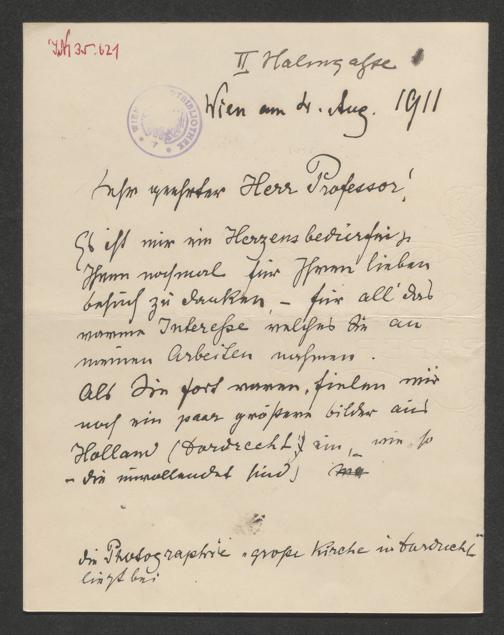 J.N. 35.621
II Halmgasse
Wien am 4. Aug. 1911
Sehr geehrter Herr Professor!
Es ist mir ein Herzensbedürfniß
Ihnen nochmal für Ihren lieben
besuch zu danken, – für all' das
warme Interesse welches Sie an
meinen Arbeiten nahmen.
Als Sie fort waren, fielen mir
noch ein paar größere bilder aus
Holland (Dordrecht) ein, – wie so
– die unvollendet sind)
die Photographie „große Kirche in Dordrecht“
liegt bei